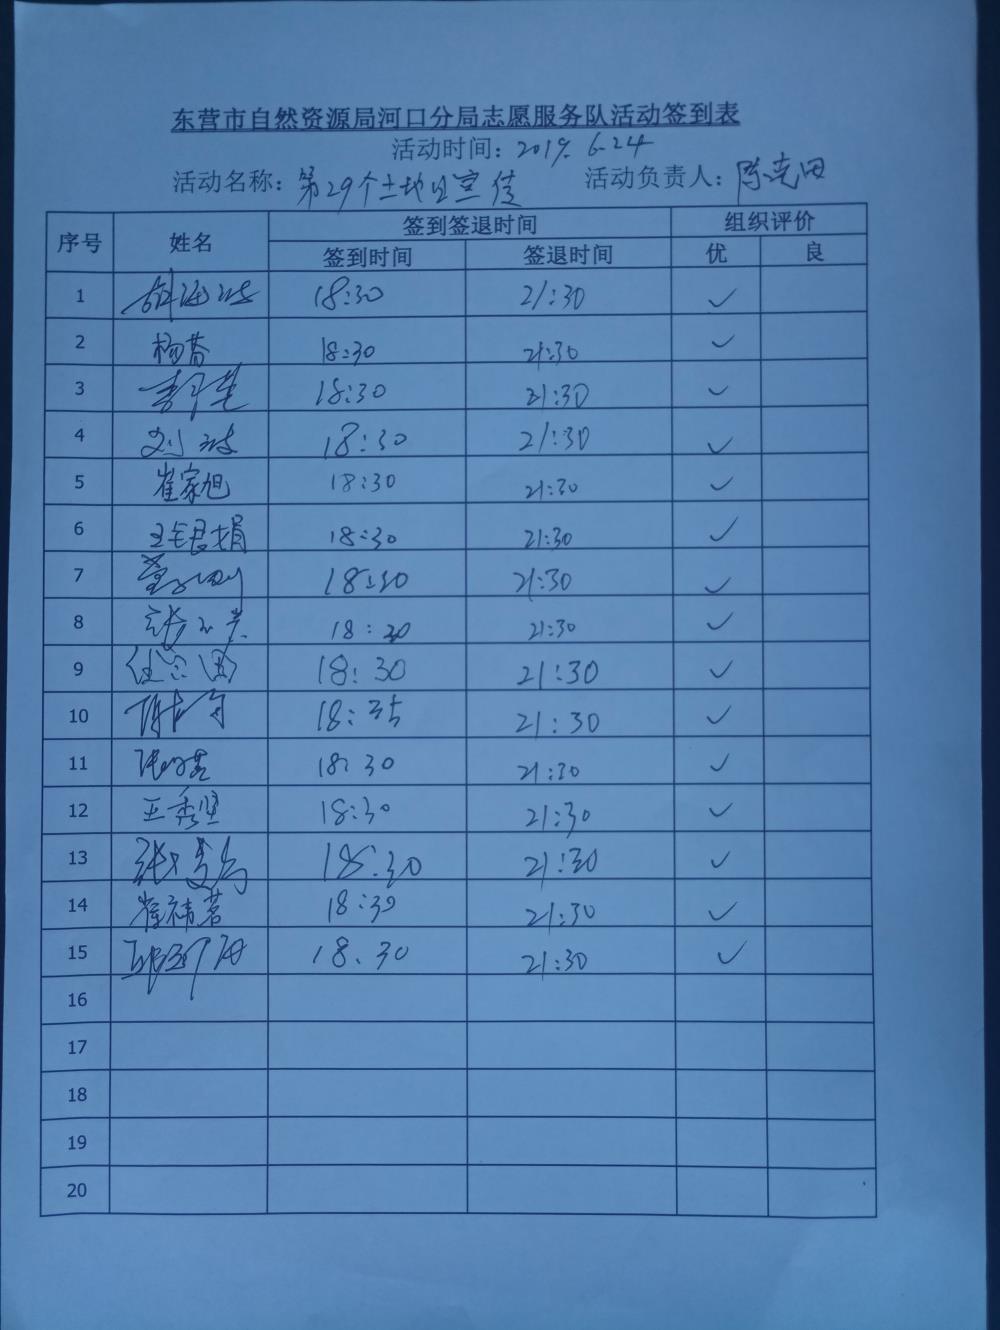 东营市自然资源局河口分局志愿服务队活动签到表
活动时间：2019.6.24
活动名称：第29个土地日宣传 活动负责人：
序号 姓名 签到签退时间 组织评价
签到时间 签退时间 优 良
1 18:30 21:30 ✓
2 18:30 21:30 ✓
3 18:30 21:30 ✓
4 刘波 18:30 21:30 ✓
5 崔家旭 18:30 21:30 ✓
6 18:30 21:30 ✓
7 18:30 21:30 ✓
8 18:30 21:30 ✓
9 18:30 21:30 ✓
10 21:30 ✓
11 18:30 21:30 ✓
12 王秀坚 18:30 21:30 ✓
13 18:30 21:30 ✓
14 18:30 21:30 ✓
15 18.30 21:30 ✓
16
17
18
19
20